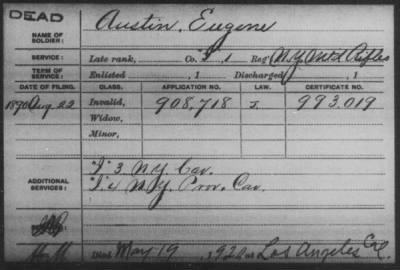 DEAD
Austin, Eugene
NAME OF SOLDIER:
SERVICE: Late rank, Co. I, 1 Reg't N.Y. Mt'd Rifles
TERM OF SERVICE: Enlisted , 1 Discharged , 1
DATE OF FILING. CLASS. APPLICATION NO. LAW. CERTIFICATE NO.
1890 Aug. 22 Invalid, 908,718 J. 993.019
Widow,
Minor,
ADDITIONAL SERVICES:
"I" 3 N.Y. Cav.
"I" 4 N.Y. Prov. Cav.
Died May 19, 192 at Los Angeles Cal.